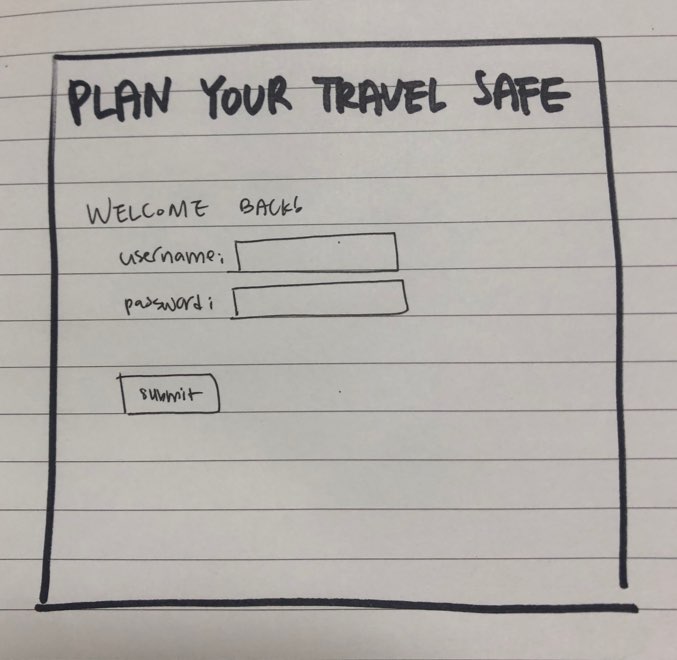 PLAN YOUR TRAVEL SAFE
WELCOME BACK!
username:
password:
submit